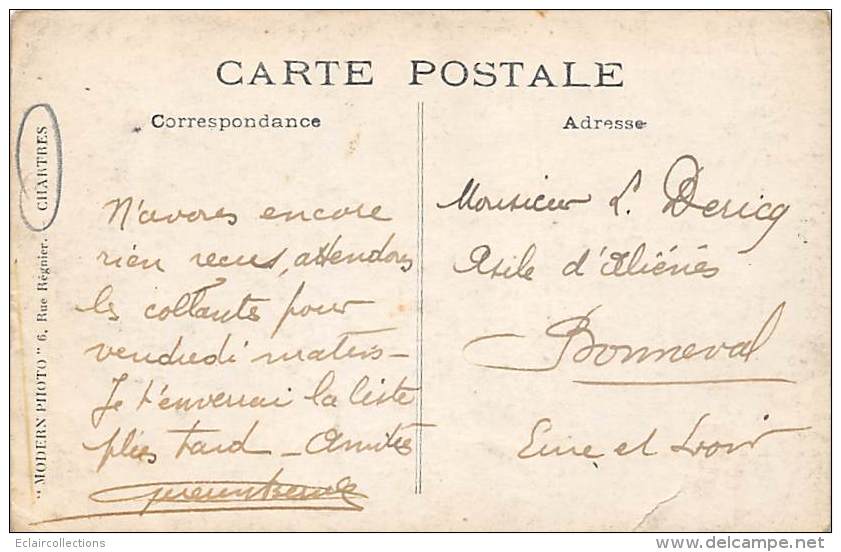 CARTE POSTALE
Correspondance
Adresse
N'avons encore
rien recus, attendons
les collants pour
vendredi matin -
Je t'enverrai la liste
plus tard - Amitiés
Monsieur L. Dericq
Asile d'Aliénés
Bonneval
Eure et Loir
"MODERN PHOTO" 6, Rue Régnier. - CHARTRES
Eclaircollections
www.delcampe.net